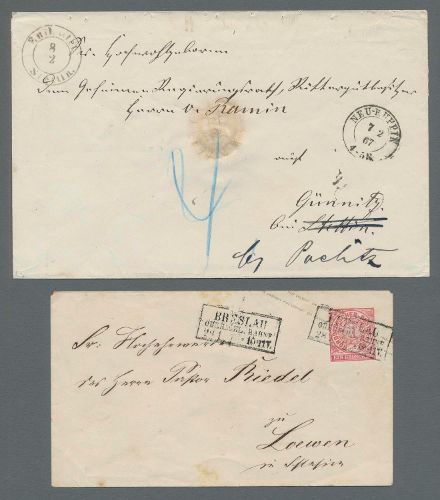 8
2
Sr. Hochwohlgeboren
Dem Geheimen Regierungsrath, Rittergutsbesitzer
Herrn v. Ramin
NEU-RUPPIN
7 2
67
4-5N.
auf
Günnitz
bei Stettin
by Poelitz
4
BRESLAU
OBERSCHL. BAHNH.
28 1
Sr. Hochehrwürden
des Herrn Pastor Riedel
zu
Loewen
in Schlesien